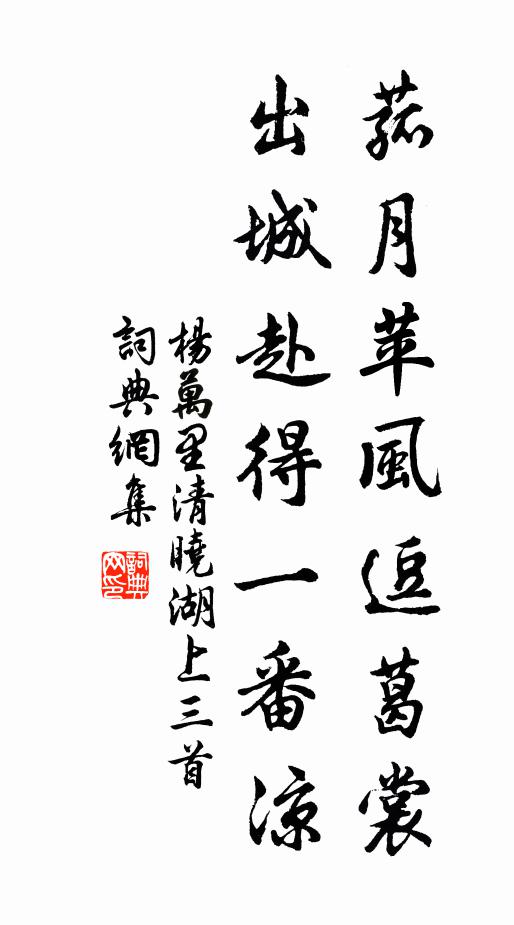 菰月苹風逗葛裳
出城赴得一番涼
楊萬里清曉湖上三首
詞典網集
詞典網印